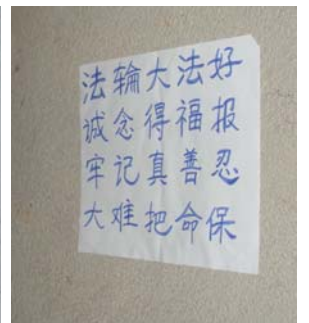 法轮大法好
诚念得福报
牢记真善忍
大难把命保